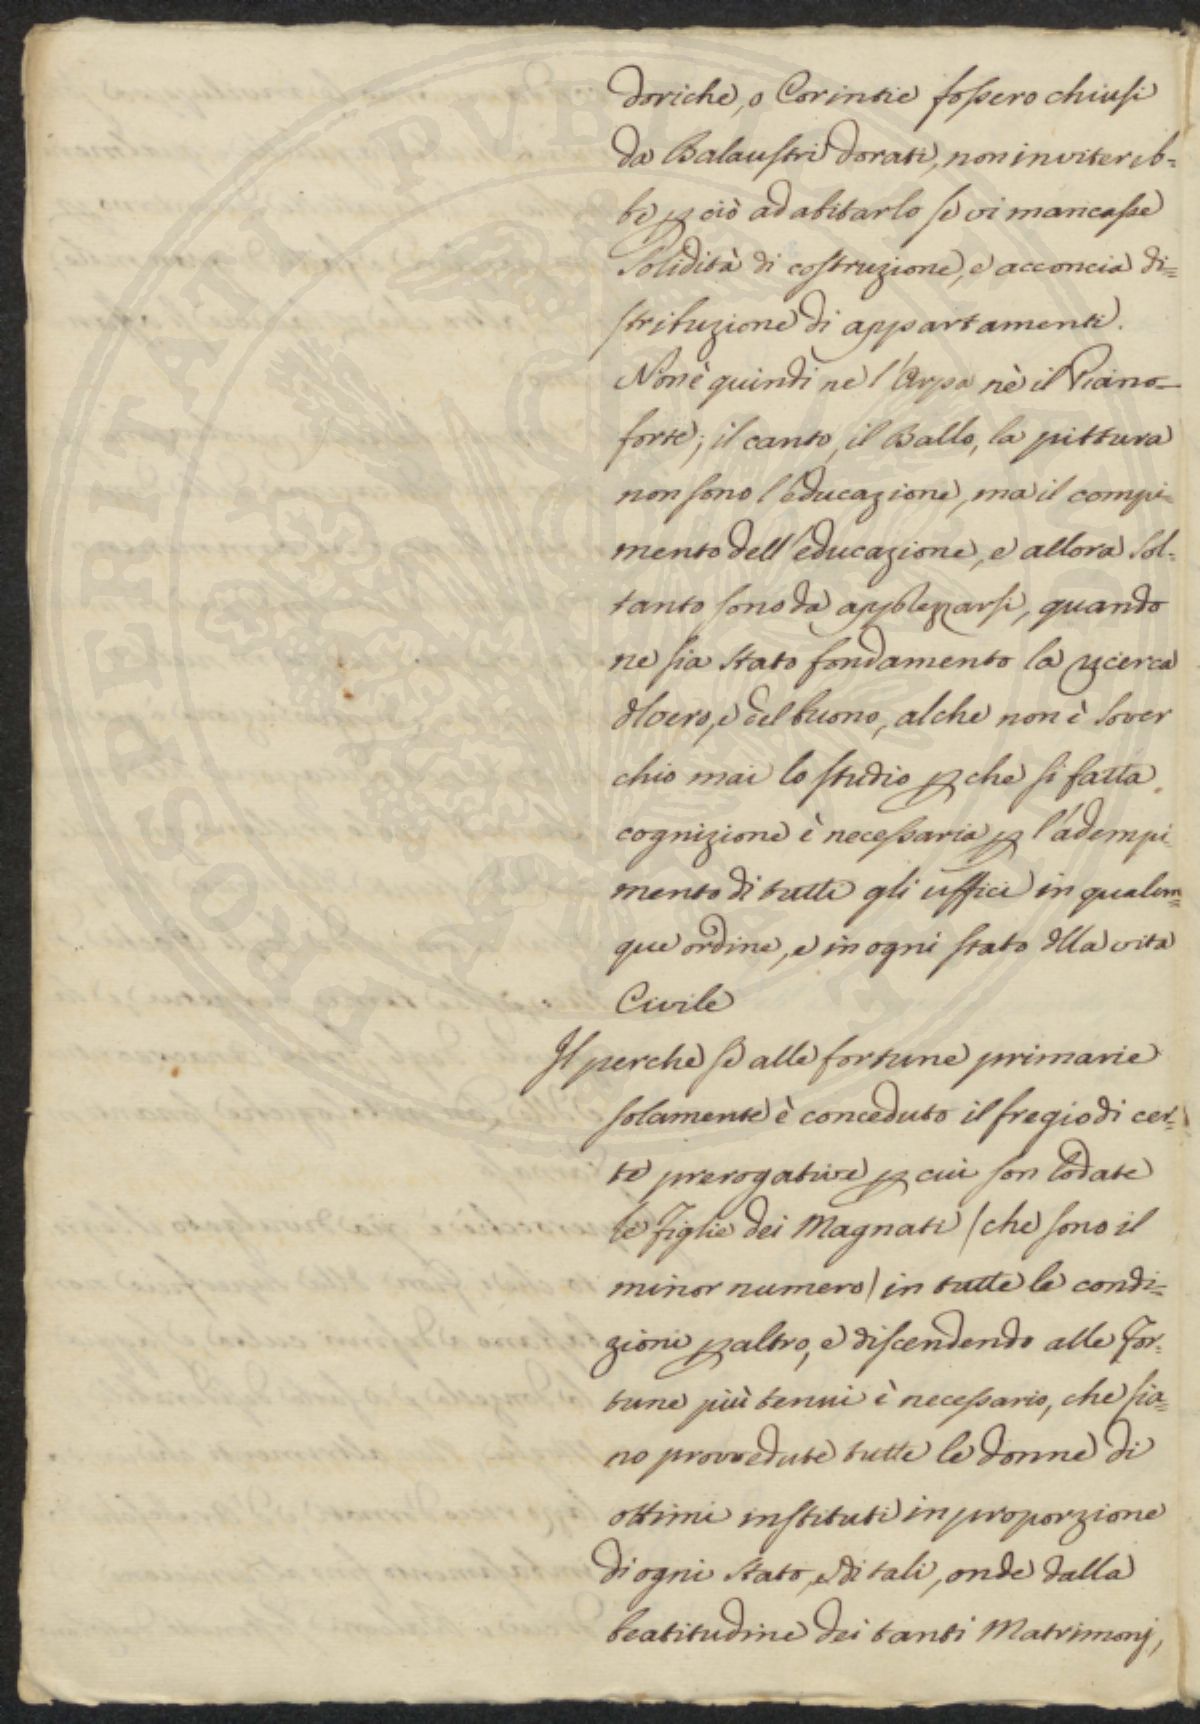 doriche, o Corintie fossero chiusi
da Balaustri dorati, non inviterib=
be p ciò ad abitarlo se vi mancasse
solidità di costruzione, e acconcia di=
stribuzione di appartamenti.
Non è quindi ne l'Arpa nè il Piano=
forte; il canto, il Ballo, la pittura
non sono l'educazione, ma il compi=
mento dell'educazione, e allora sol=
tanto sono da apprezzarsi, quando
ne sia stato fondamento la ricerca
dl vero, e del buono, al che non è sover
chio mai lo studio p che si fatta
cognizione è necessaria p l'adempi
mento di tutti gli uffici in qualun=
que ordine, e in ogni stato dlla vita
Civile
Il perche se alle fortune primarie
solamente è conceduto il fregio di cer=
te prerogative p cui son lodate
le Figlie dei Magnati (che sono il
minor numero) in tutte le condi=
zioni p altro, e discendendo alle For=
tune più tenui è necessario, che sia=
no provvedute tutte le donne di
ottimi instituti in proporzione
di ogni stato, e di tali, onde dalla
beatitudine dei tanti Matrimonj,
PROSPERITATI PVBLICAE